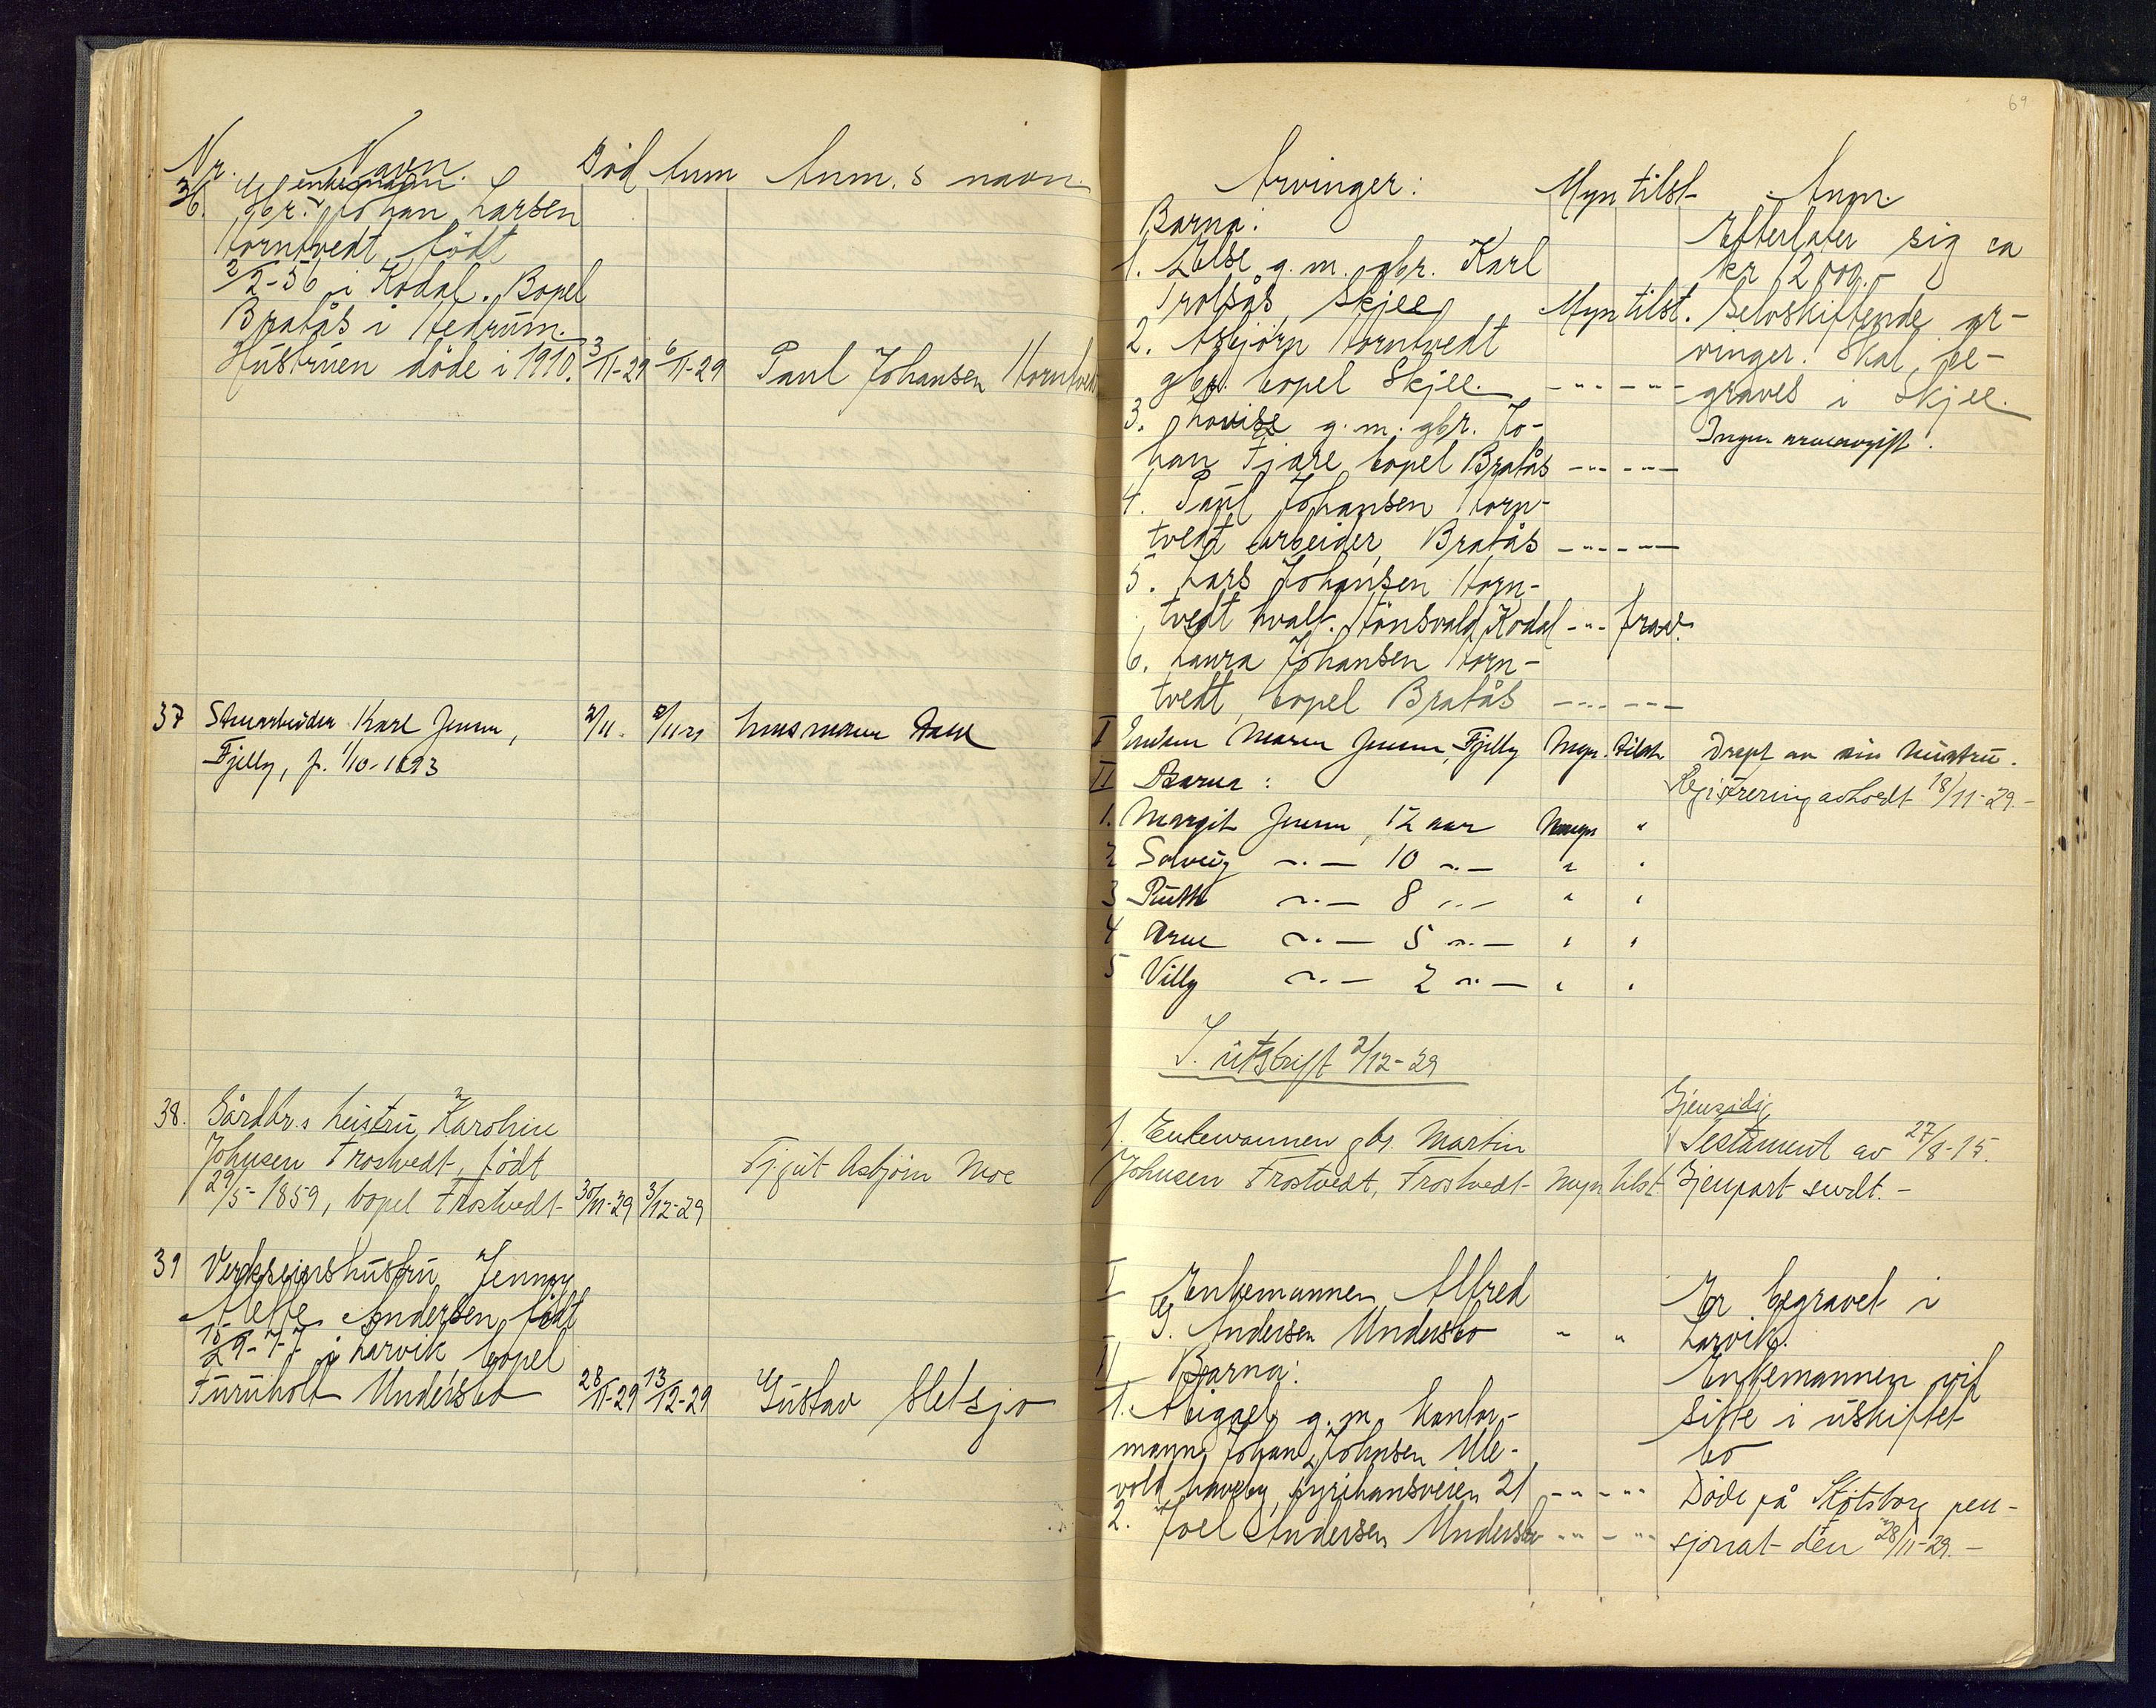 Nr. Navn. Död Anm Anm.s navn.
36. enkemann
gbr. Johan Larsen
Horntvedt, född
2/2-56 i Kodal. Bopel
Bratås i Hedrum.
Hustruen döde i 1910. 3/11-29 6/11-29 Paul Johansen Horntvedt
37 Karl Jensen, 2/11. 2/11-29
Fjelly, f. 1/10-1893
38. Gårdbr.s hustru Karoline
Johnsen Frostvedt, födt
29/5-1859, bopel Frostvedt 30/11-29 3/12-29 Asbjörn Moe
39 Verkseiershustru Jenny
Andersen, födt
i Larvik bopel
Furuholt Undersbo 28/11-29 13/12-29 Gustav Sletsjø
69
Arvinger: Myn tilst Anm.
Barna:
1. Else g.m. gbr. Karl
Trolsås, Skjee Myn tilst.
2. Asbjörn Horntvedt
gbr. bopel Skjee. -"- -"-
3. Lovise g.m. gbr. Jo-
han Fjære bopel Bratås -"- -"-
4. Paul Johansen Horn-
tvedt arbeider, Bratås -"- -"-
5. Lars Johansen Horn-
tvedt hvalf. Kodal -"- frav.
6. Laura Johansen Horn-
tvedt, bopel Bratås -"- -"-
Efterlater sig ca
kr 12000.-
Selvskiftende ar-
vinger. Skal be-
graves i Skjee.
Ingen arveavgift.
I Enken Maren Jensen, Fjelly Myn. tilst. Drept av sin hustru.
II Barna: Registrering avholdt 18/11-29.-
1. Margit Jensen, 12 aar Umyn "
2 Solveig -"- 10 -"- " "
3 Ruth -"- 8 -"- " "
4 Arne -"- 5 -"- " "
5 Villy -"- 2 -"- " "
S. utskrift 2/12-29
1. Enkemannen gbr. Martin
Johnsen Frostvedt, Frostvedt Myn tilst
Gjensidig
Testament av 27/8-15.
Gjenpart sendt.-
I Enkemannen Alfred
G. Andersen Undersbo " "
II Barna:
1. Abigael g.m. kontor-
mann Johan Johnsen Ule-
vold haveby, 21 -"- -"-
2. Joel Andersen Undersbo -"- -"-
Er begravet i
Larvik.
Enkemannen vil
sitte i uskiftet
bo
Döde på pen-
sjonat den 28/11-29.-